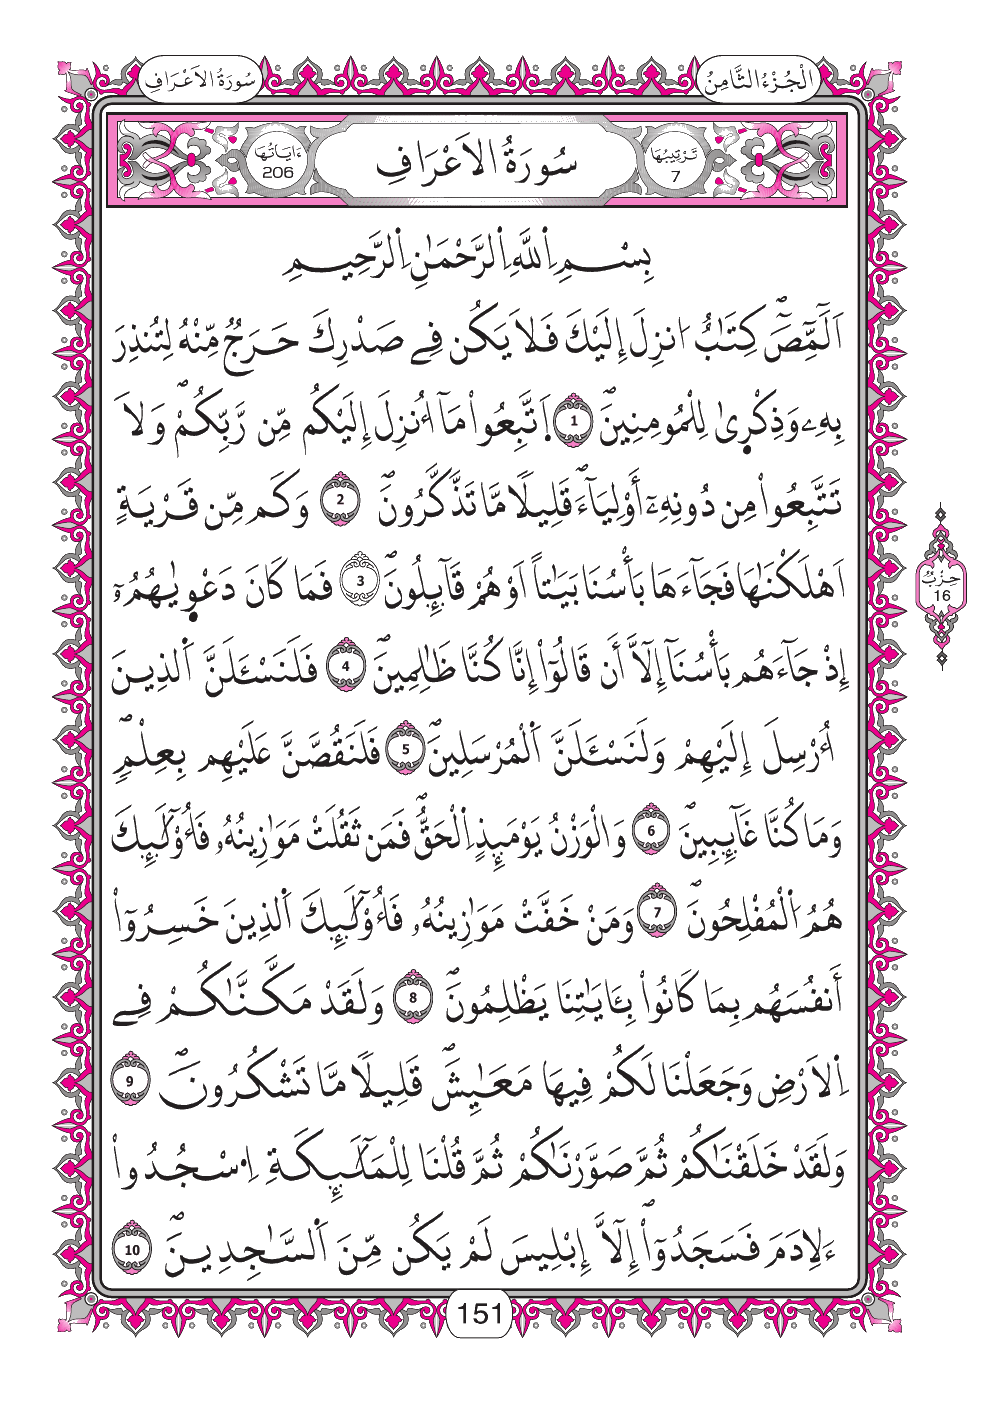 الْجُزْءُ الثَّامِنُ
سُورَةُ الاَعْرَافِ
تَرْتِيبُهَا
7
سُورَةُ الاَعْرَافِ
ءَايَاتُهَا
206
بِسْمِ اِ۬للَّهِ اِ۬لرَّحْمَٰنِ اِ۬لرَّحِيمِ
أَلَٓمِّٓصَٓۖ كِتَٰبٌ ا۟نزِلَ إِلَيْكَ فَلاَ يَكُن فِے صَدْرِكَ حَرَجٌ مِّنْهُ لِتُنذِرَ
بِهِۦ وَذِكْر۪ىٰ لِلْمُومِنِينَۖ 1 اَ۪تَّبِعُواْ مَآ أُنزِلَ إِلَيْكُم مِّن رَّبِّكُمْۖ وَلاَ
تَتَّبِعُواْ مِن دُونِهِۦٓ أَوْلِيَآءَۖ قَلِيلًا مَّا تَذَّكَّرُونَۖ 2 وَكَم مِّن قَرْيَةٍ
اَهْلَكْنَٰهَا فَجَآءَهَا بَأْسُنَا بَيَٰتاً اَوْ هُمْ قَآئِلُونَۖ 3 فَمَا كَانَ دَعْو۪يٰهُمُۥٓ
إِذْ جَآءَهُم بَأْسُنَآ إِلَّآ أَن قَالُوٓاْ إِنَّا كُنَّا ظَٰلِمِينَۖ 4 فَلَنَسْـَٔلَنَّ اَ۬لذِينَ
أُرْسِلَ إِلَيْهِمْ وَلَنَسْـَٔلَنَّ اَ۬لْمُرْسَلِينَۖ 5 فَلَنَقُصَّنَّ عَلَيْهِم بِعِلْمٍۖ
وَمَا كُنَّا غَآئِبِينَۖ 6 وَالْوَزْنُ يَوْمَئِذٍ اِ۬لْحَقُّۖ فَمَن ثَقُلَتْ مَوَٰزِينُهُۥ فَأُوْلَٰٓئِكَ
هُمُ اُ۬لْمُفْلِحُونَۖ 7 وَمَنْ خَفَّتْ مَوَٰزِينُهُۥ فَأُوْلَٰٓئِكَ اَ۬لذِينَ خَسِرُوٓاْ
أَنفُسَهُم بِمَا كَانُواْ بِـَٔايَٰتِنَا يَظْلِمُونَۖ 8 وَلَقَدْ مَكَّنَّٰكُمْ فِے
اِ۬لاَرْضِ وَجَعَلْنَا لَكُمْ فِيهَا مَعَٰيِشَۖ قَلِيلًا مَّا تَشْكُرُونَۖ 9
وَلَقَدْ خَلَقْنَٰكُمْ ثُمَّ صَوَّرْنَٰكُمْ ثُمَّ قُلْنَا لِلْمَلَٰٓئِكَةِ اِ۟سْجُدُواْ
ءَلِادَمَ فَسَجَدُوٓاْۖ إِلَّآ إِبْلِيسَ لَمْ يَكُن مِّنَ اَ۬لسَّٰجِدِينَۖ 10
حِزْبُ
16
151